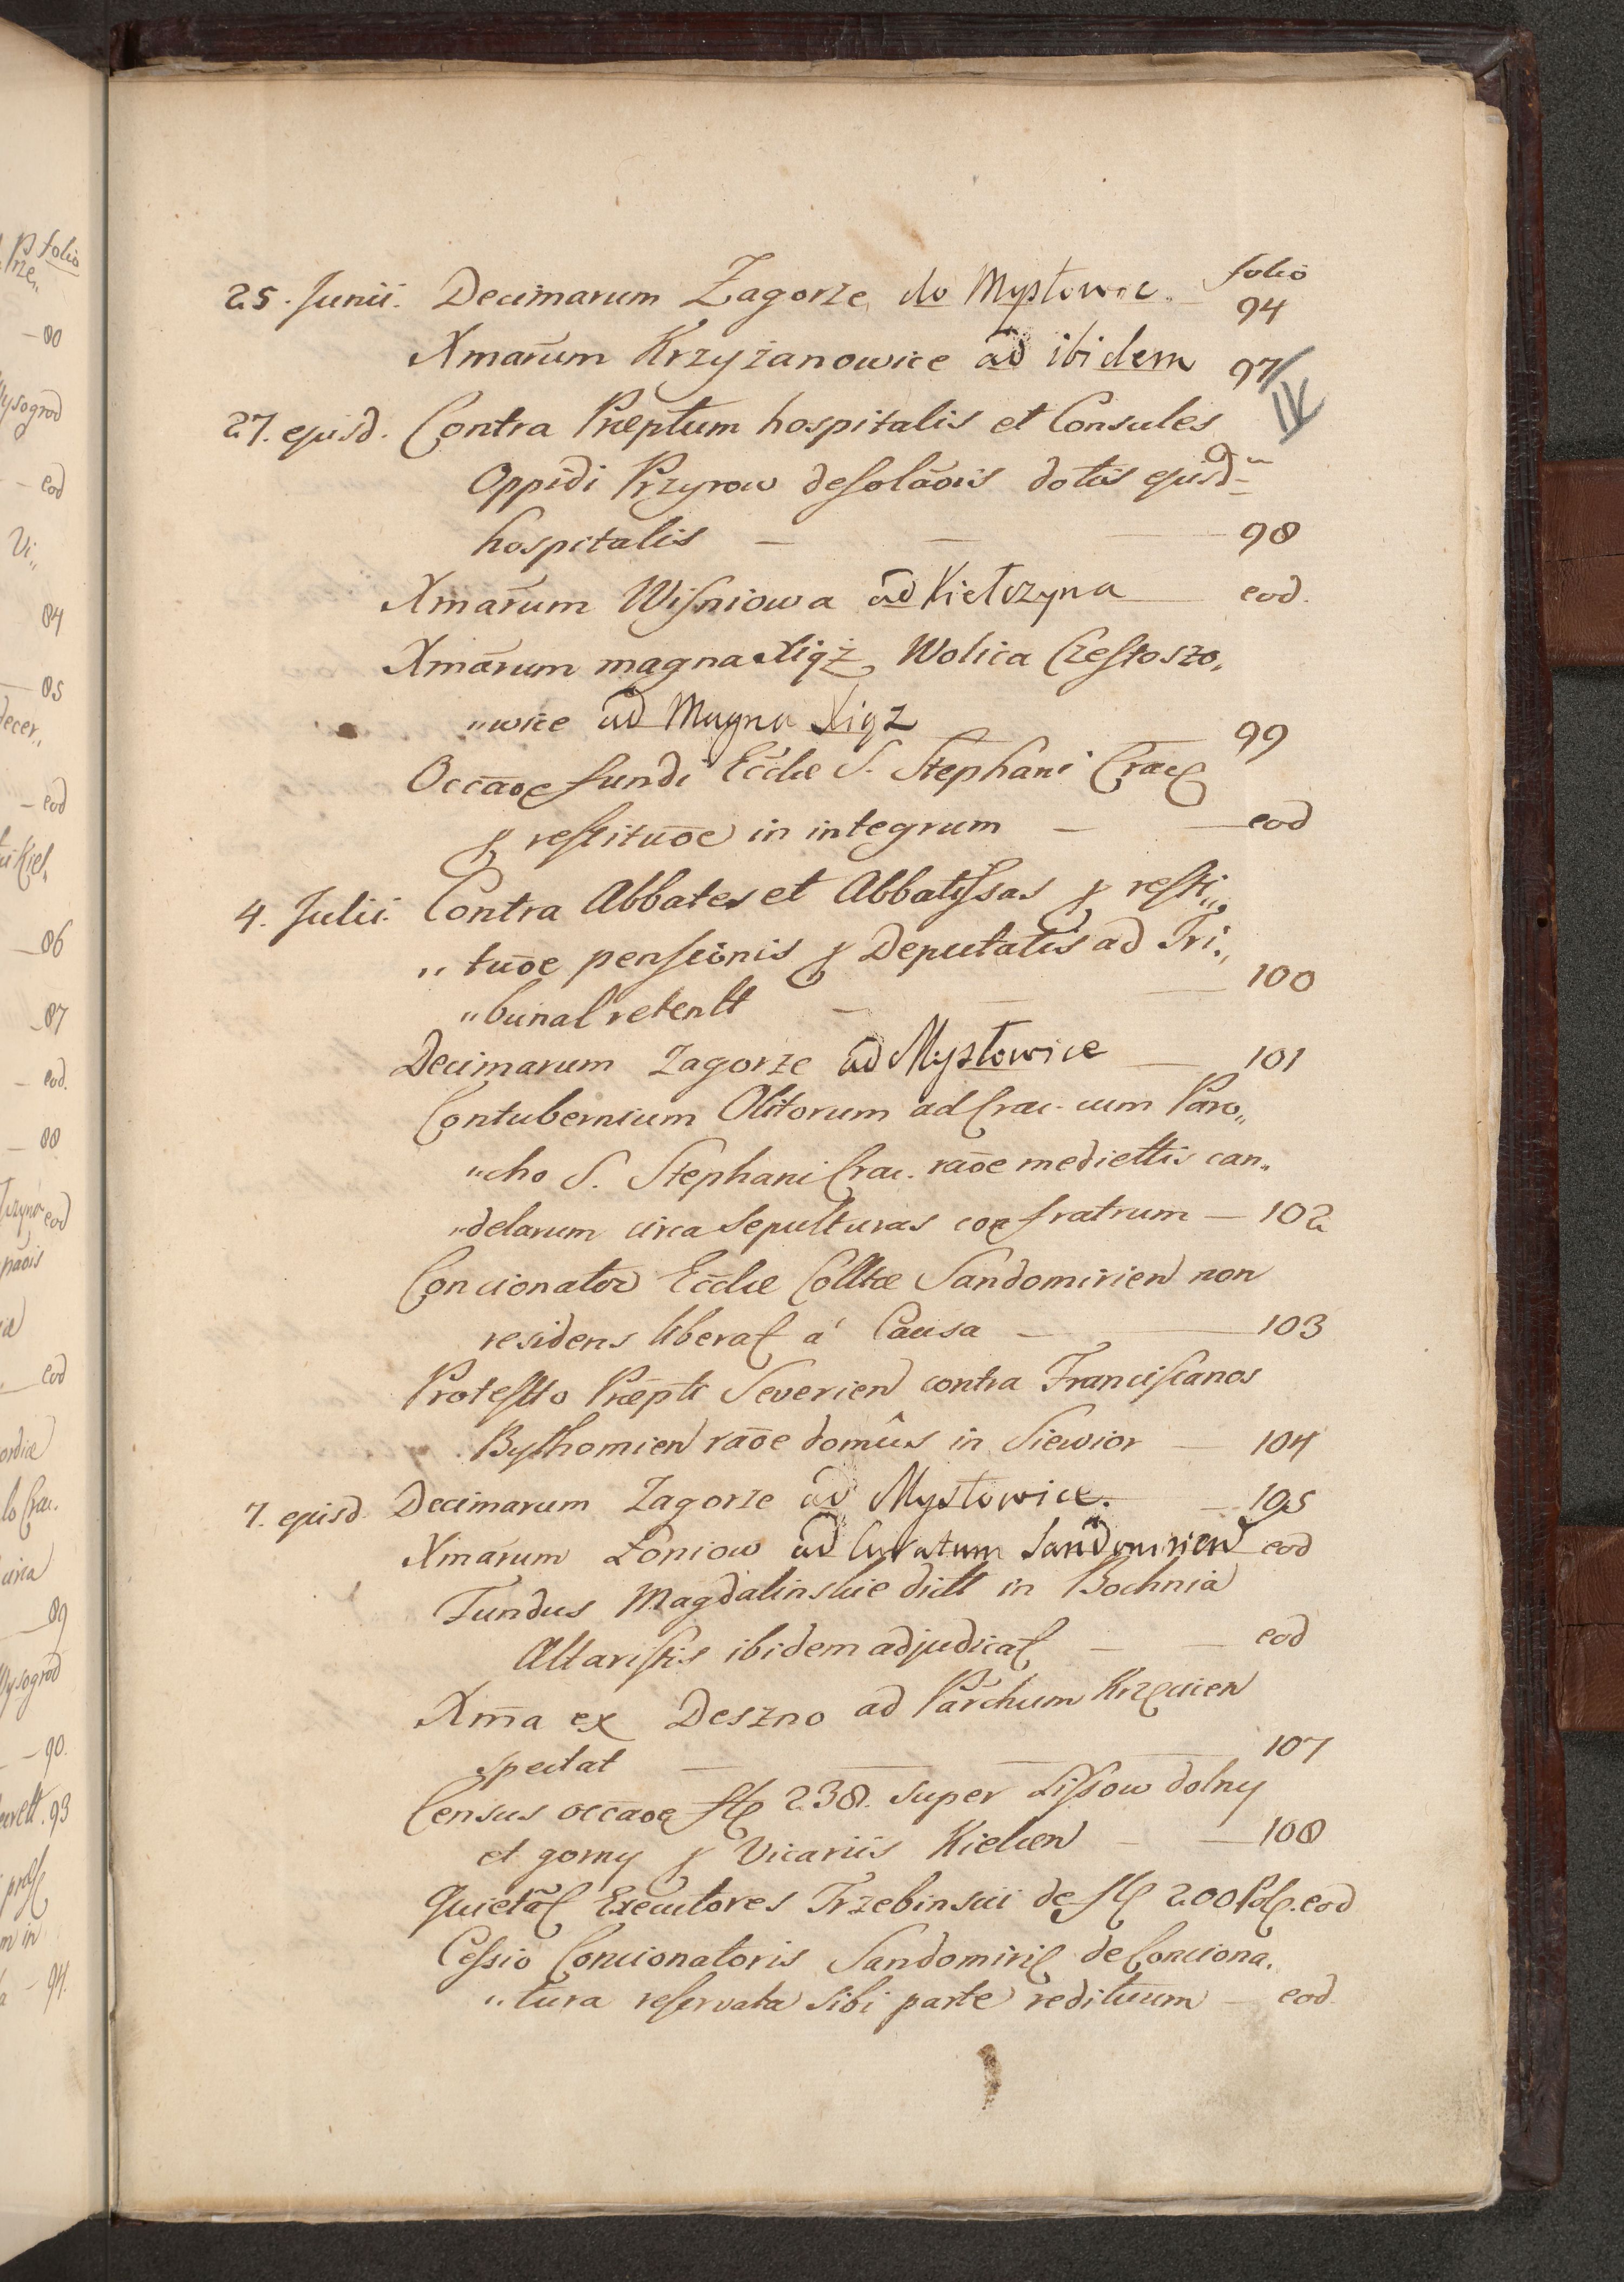 folio
25. Junii. Decimarum Zagorze do Mysłowic. 94
Xmarum Krzyżanowice ad ibidem 97
IX
27. ejusd. Contra Præptum hospitalis et Consules
Oppidi Przyrow desolaōis dotis ejusd
hospitalis — — — 98
Xmarum Wisniowa ad Kiełczyna eod.
Xmarum magna Xiąż, Wolica Czestoszo„
„wice ad Magna Xiąz 99
Occaōe fundi Eccłæ S. Stephani Crac
p restituōe in integrum — — eod
4. Julii. Contra Abbates et Abbatissas p resti„
„tuōe pensionis p Deputatis ad Tri„
„bunal retentt — — — 100
Decimarum Zagorze ad Mysłowice — 101
Contubernium Olitorum ad Crac. cum Paro„
„cho S. Stephani Crac. raōe mediettis can„
„delarum circa Sepulturas con fratrum — 102
Concionator Eccłæ Collttæ Sandomirien non
residens liberat à Causa — — 103
Protesttio Præpti Severien contra Franciscanos
Bythomien raōe domûs in Siewior — 104
7. ejusd. Decimarum Zagorze ad Mysłowice. — 105
Xmarum Łoniow ad Curatum Sandomirien eod
Fundus Magdalinskie dictt in Bochnia
Altaristis ibidem adjudicat — — eod
Xma ex Deszno ad Parchum Krzęcien
spectat — — — 107
Census occaōe fl 238. super Lissow dolny
et gorny p Vicariis Kielcen — — 108
Quietat Executores Trzebinscii de fl 200 Pol. eod
Cessio Concionatoris Sandomirie de Conciona„
„tura reservata sibi parte redituum — eod.